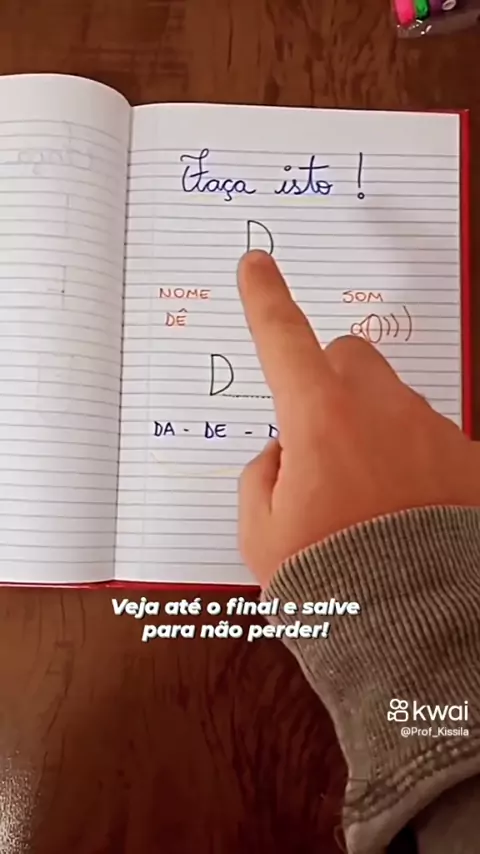 Faça isto!
D
NOME
SOM
DÊ
D
DA - DE - D
Veja até o final e salve
para não perder!
kwai
@Prof_Kissila